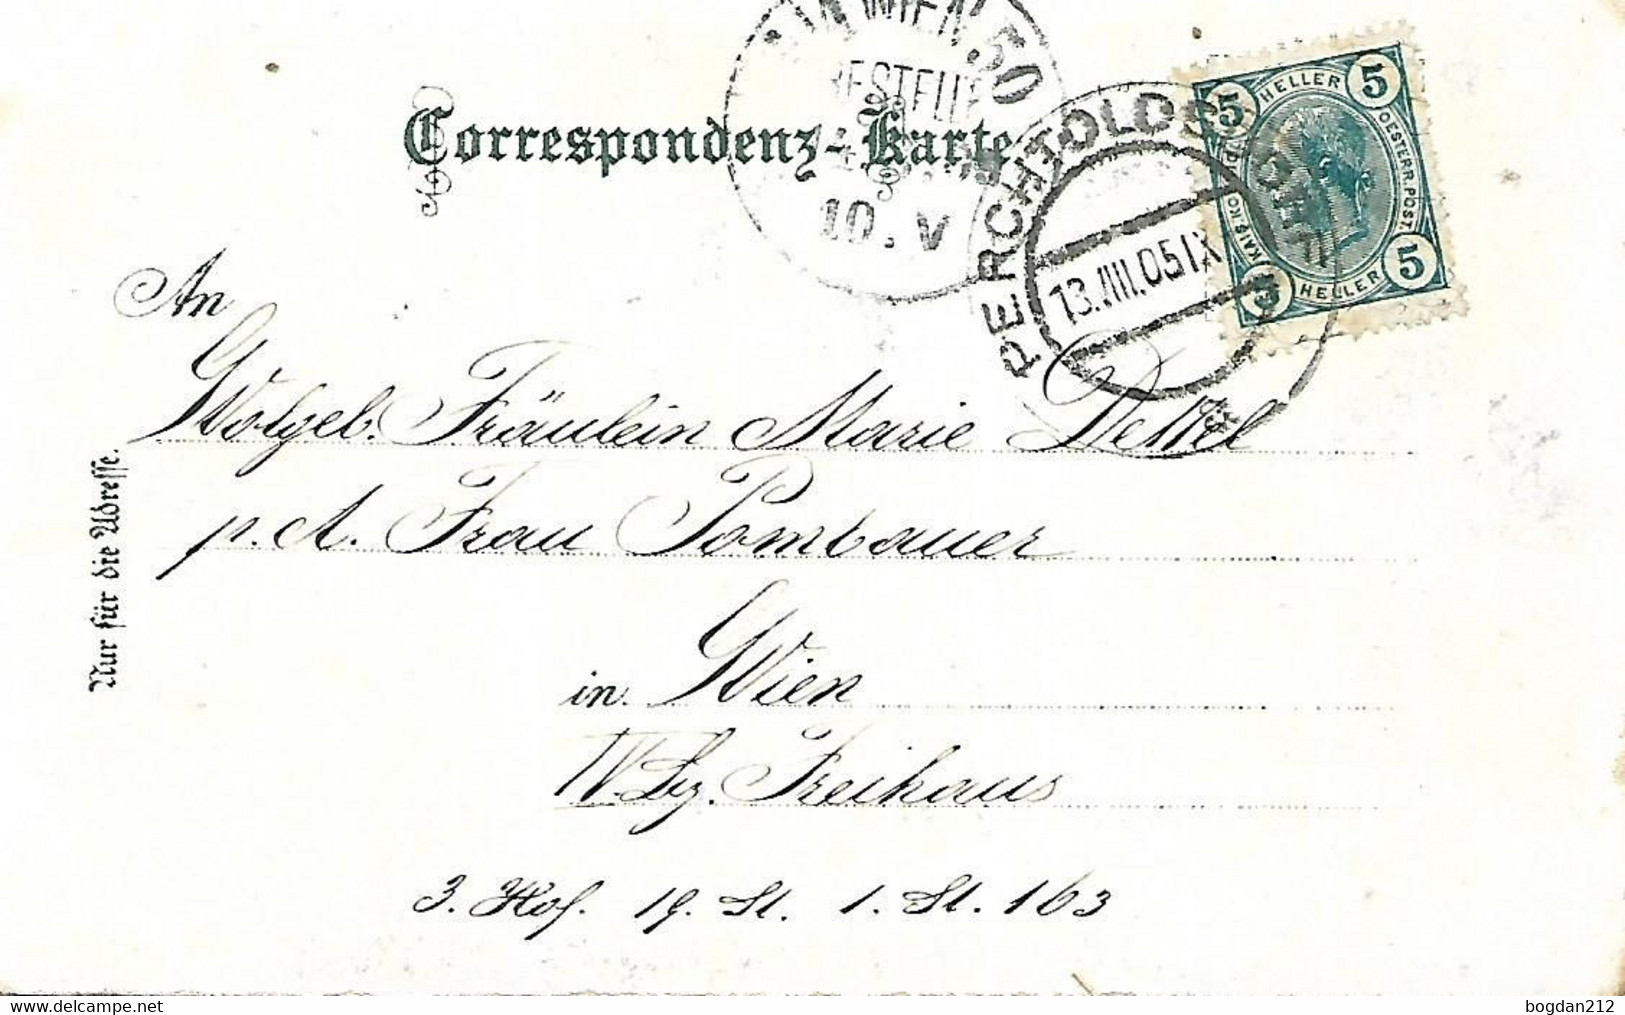 WIEN 50
BESTELLT
10. V
Correspondenz-Karte
PERCHTOLDSDORF
13.VIII.05 IX
5 HELLER 5
OESTERR. POST
KAIS. KÖ
5 HELLER 5
An
Wolgeb. Fräulein Marie
p. A. Frau Pombauer
in Wien
IV. Bz. Freihaus
3. Hof. 19. St. 1. St. 163
Nur für die Adresse.
bogdan212